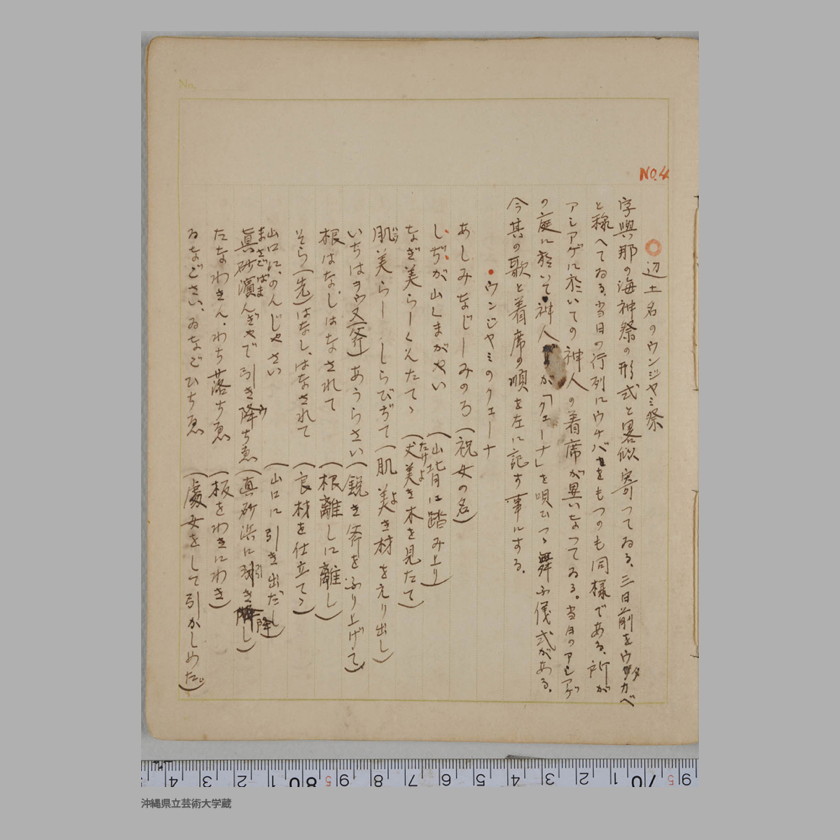 No.4
辺土名のウンジャミ祭
字與那の海神祭の形式と畧似寄つてゐる、三日前をウタカベ
と稱へてゐる、当日の行列にウチバをもつのも同様である、所が
アシアゲに於いての神人の着席が異いなつてゐる。当日のアシアゲ
の庭に於いて神人が「クェーナ」を唄ひつゝ舞ふ儀式がある。
今其の歌と着席の順を左に記す事にする。
・ウンジャミのクェーナ
あしみなじーみのろ(祝女の名)
しぢが山しまがやい(山背に踏み上り)
なぎ美らーくんたてゝ(丈美き木を見たて)
肌美らー しらびぢて(肌美き材をえり出し)
いちはヲゥ又(斧)あうらさい(鋭き斧をふり上げて)
根はなしはなされて(根離しに離し)
そら(先)はなし、はなされて(良材を仕立てゝ)
山口に、のんじやさい(山口に引き出だし)
眞砂濱んぎやで引き降ちゑ(眞砂浜に引き降し)
たなわきん、わち落ちゑ(板をわきにわき)
ゐなごさい、ゐなごひちゑ(處女をして引かしめた)
沖縄県立芸術大学蔵